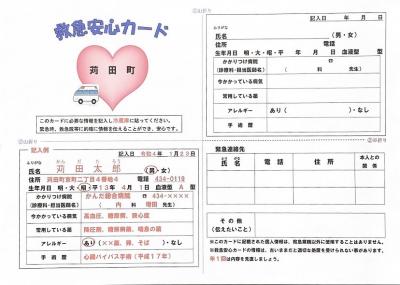 救急安心カード
苅田町
このカードに必要な情報を記入し冷蔵庫に貼ってください。
緊急時、救急隊等に的確に情報を伝えることができ、安心です。
②山折り
記入例
記入日 令和4年 1月23日
ふりがな かん だ た ろう
氏名 苅田太郎 (男・女)
住所 苅田町京町二丁目4番地4 電話 434-0119
生年月日 明・大・昭・平13年4月1日 血液型 A型
かかりつけ病院 かんだ総合病院 ☎ 434-××××
(診療科・担当医師名) ( 内 科 増田 先生)
今かかっている病気 高血圧、糖尿病、狭心症
常用している薬 降圧剤、糖尿病薬、喘息の薬
アレルギー あり(××薬、卵、そば )・なし
手術歴 心臓バイパス手術(平成17年)
①山折り
記入日 年 月 日
ふりがな
氏名 (男・女)
住所 電話
生年月日 明・大・昭・平 年 月 日 血液型 型
かかりつけ病院 ☎
(診療科・担当医師名) ( 科 先生)
今かかっている病気
常用している薬
アレルギー あり( )・なし
手術歴
②山折り
緊急連絡先
ふりがな
氏名 電話 住所 本人との関係
その他
(伝えたいこと)
※このカードに記載された個人情報は、救急業務以外に使用することはありません。
年1回は内容を見直しましょう。